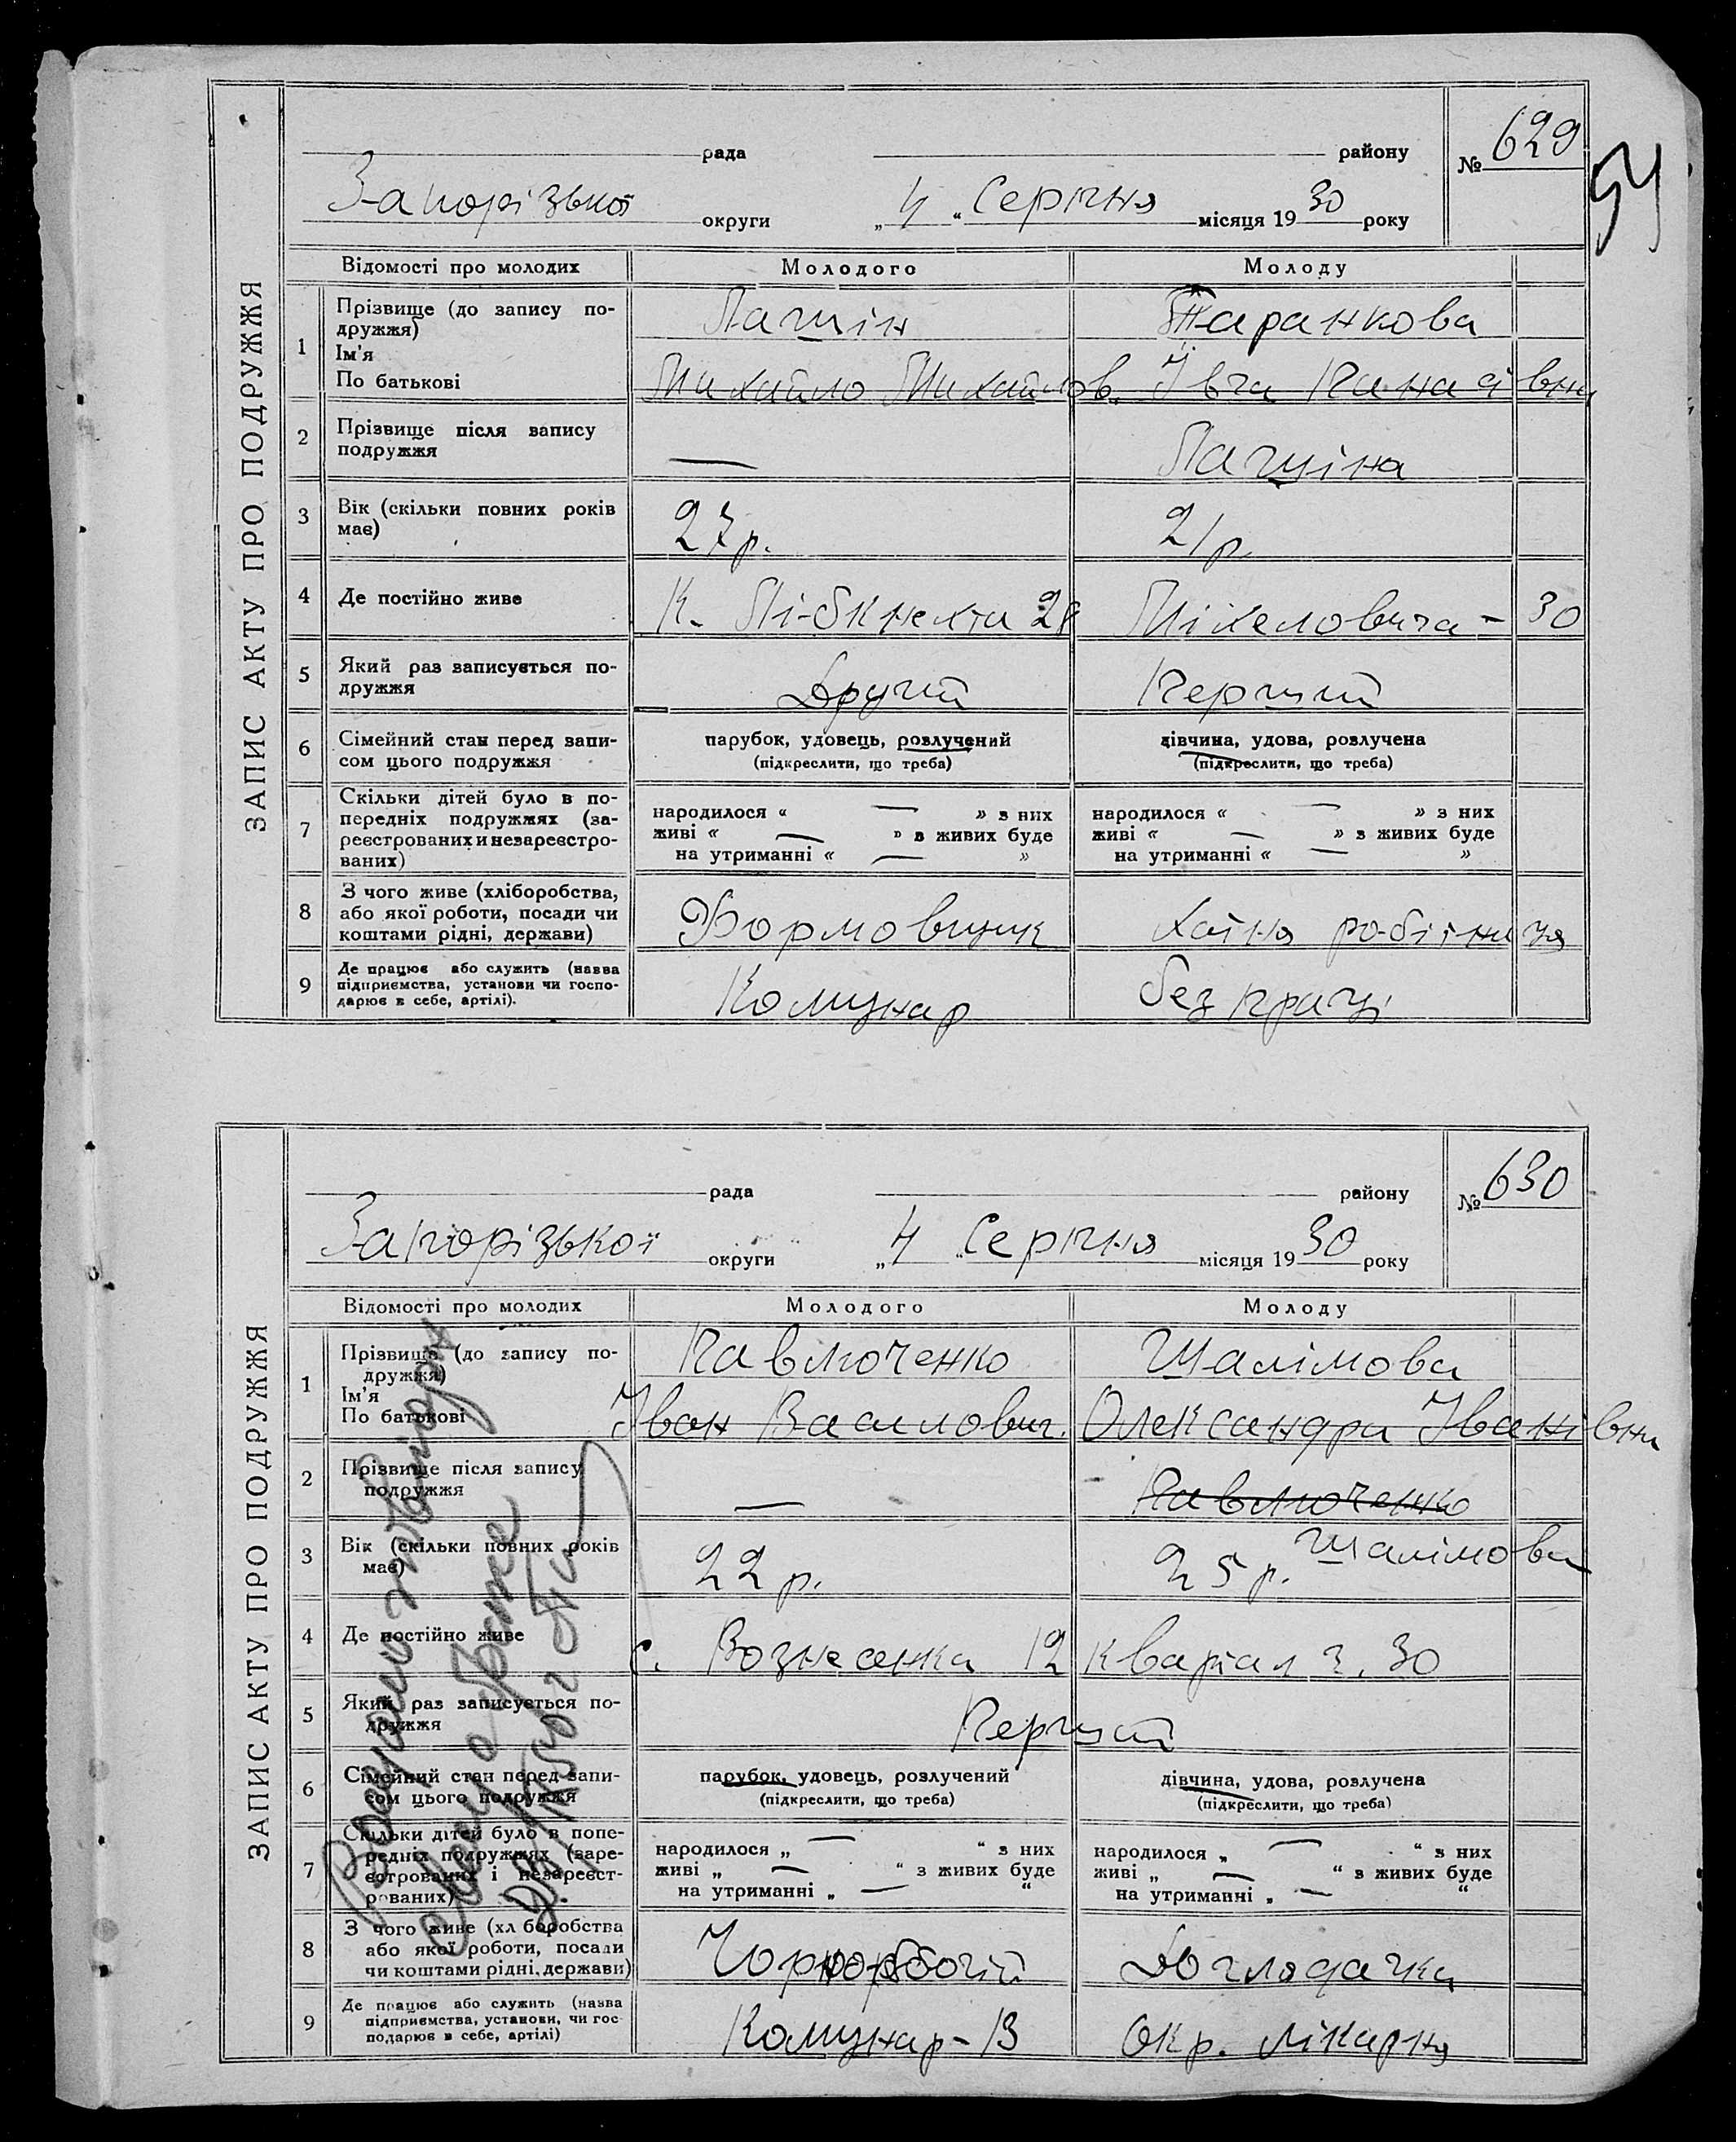 54
ЗАПИС АКТУ ПРО ПОДРУЖЖЯ
рада району № 629
Запорізької округи „4“ Серпня місяця 1930 року
Відомості про молодих Молодого Молоду
1 Прізвище (до запису по-
дружжя) Лашін Таранкова
Ім'я
По батькові Михайло Михайлов. Івга Панасівна
2 Прізвище після запису
подружжя — Лашіна
3 Вік (скільки повних років
має) 27 р. 21 р.
4 Де постійно живе К. Лі-бкнехта 28 Міхеловича - 30
5 Який раз записується по-
дружжя Другий Перший
6 Сімейний стан перед запи-
сом цього подружжя
парубок, удовець, розлучений дівчина, удова, розлучена
(підкреслити, що треба) (підкреслити, що треба)
7 Скільки дітей було в по-
передніх подружжях (за-
реєстрованих и незареєстро-
ваних)
народилося « — » з них народилося « — » з них
живі « — » з живих буде живі « — » з живих буде
на утриманні « — » на утриманні « — »
8 З чого живе (хліборобства,
або якої роботи, посади чи
коштами рідні, держави) Формовщик хатня робітниця
9 Де працює або служить (назва
підприємства, установи чи госпо-
дарює в себе, артілі). Комунар без праці
ЗАПИС АКТУ ПРО ПОДРУЖЖЯ
рада району № 630
Запорізької округи „4“ Серпня місяця 1930 року
Відомості про молодих Молодого Молоду
1 Прізвище (до запису по-
дружжя) Павлюченко Шалімова
Ім'я
По батькові Іван Василович. Олександра Іванівна
2 Прізвище після запису
подружжя — Павлюченко
Шалімова
3 Вік (скільки повних років
має) 22 р. 25 р.
4 Де постійно живе с. Вознесенка 12 квартал ч. 30
5 Який раз записується по-
дружжя Перший
6 Сімейний стан перед запи-
сом цього подружжя
парубок, удовець, розлучений дівчина, удова, розлучена
(підкреслити, що треба) (підкреслити, що треба)
7 Скільки дітей було в попе-
редніх подружжях (заре-
єстрованих і незареєст-
рованих)
народилося „ — “ з них народилося „ — “ з них
живі „ — “ з живих буде живі „ — “ з живих буде
на утриманні „ — “ на утриманні „ — “
8 З чого живе (хл боробства
або якої роботи, посади
чи коштами рідні, держави) Чорноробочій Доглядачка
9 Де працює або служить (назва
підприємства, установи, чи гос
подарює в себе, артілі) Комунар-13 Окр. лікарня